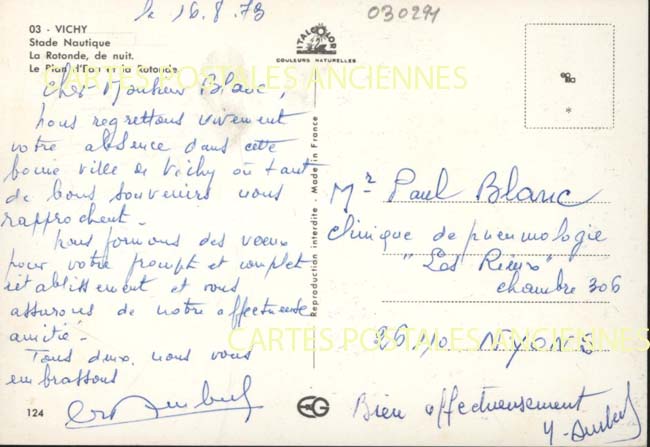 le 16.8.73
030291
03 - VICHY
Stade Nautique
La Rotonde, de nuit.
Le Plan d'Eau et la Rotonde
ITALCOLOR
COULEURS NATURELLES
CARTES POSTALES ANCIENNES
Cher Monsieur Blanc,
nous regrettons vivement
votre absence dans cette
bonne ville de Vichy où tant
de bons souvenirs nous
rapprochent -
nous formons des voeux
pour votre prompt et complet
rétablissement et vous
assurons de notre affectueuse
amitié.
Tous deux nous vous
embrassons
124
Reproduction interdite - Made in France
Mr Paul Blanc
clinique de pneumologie
"Les Rieux"
chambre 306
CARTES POSTALES ANCIENNES
26110 NYONS
EG
Bien affectueusement